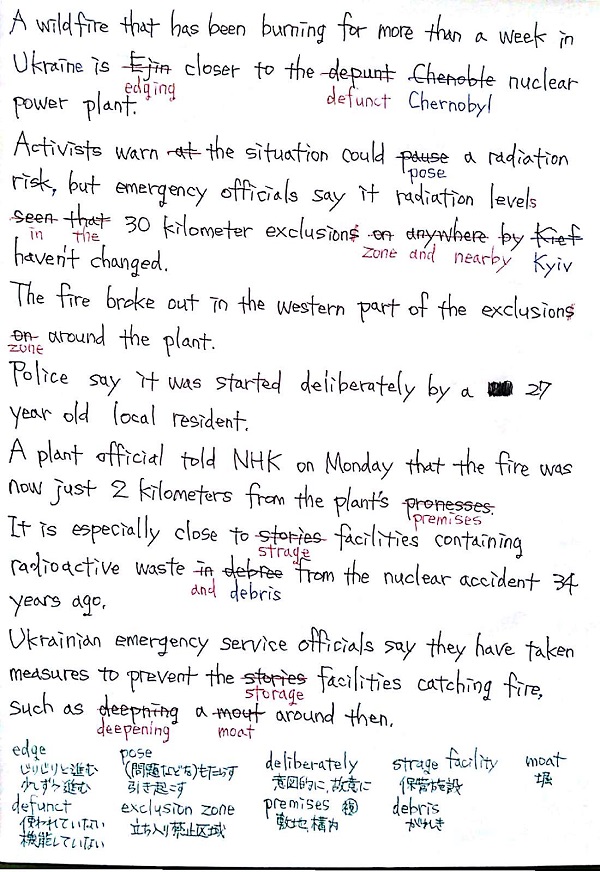 A wildfire that has been burning for more than a week in
Ukraine is Ejin closer to the depunt Chenoble nuclear
edging defunct Chernobyl
power plant.
Activists warn at the situation could pause a radiation
pose
risk, but emergency officials say it radiation levels
seen that 30 kilometer exclusions on anywhere by Kief
in the zone and nearby Kyiv
haven't changed.
The fire broke out in the western part of the exclusions
on around the plant.
zone
Police say it was started deliberately by a 27
year old local resident.
A plant official told NHK on Monday that the fire was
now just 2 kilometers from the plant's pronesses.
premises
It is especially close to stories facilities containing
strage
radioactive waste in debree from the nuclear accident 34
and debris
years ago.
Ukrainian emergency service officials say they have taken
measures to prevent the stories facilities catching fire,
storage
such as deepning a mout around then.
deepening moat
edge pose deliberately strage facility moat
じりじりと進む (問題などを)もたらす 意図的に, 故意に 保管施設 堀
少しずつ進む 引き起こす premises 複 debris
defunct exclusion zone 敷地, 構内 がれき
使われていない 立ち入り禁止区域
機能していない